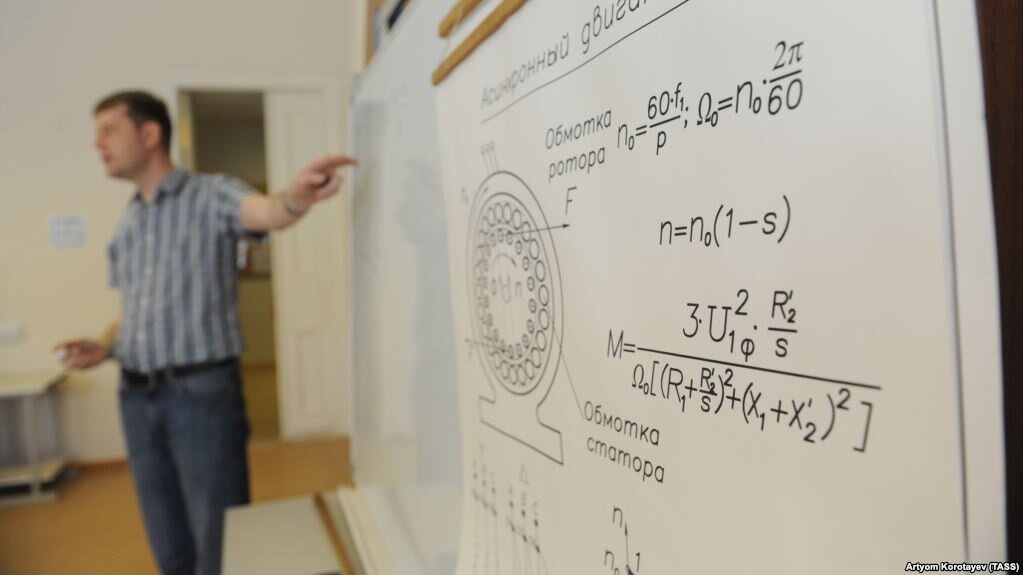 Асинхронный двига
Обмотка
ротора
n₀=60·f₁/p; Ω₀=n₀·2π/60
F
n=n₀(1-s)
n
M=3·U₁ф²·R₂'/s / Ω₀[(R₁+R₂'/s)²+(X₁+X₂')²]
Обмотка
статора
A B C
n
n₀ 1
Artyom Korotayev (TASS)